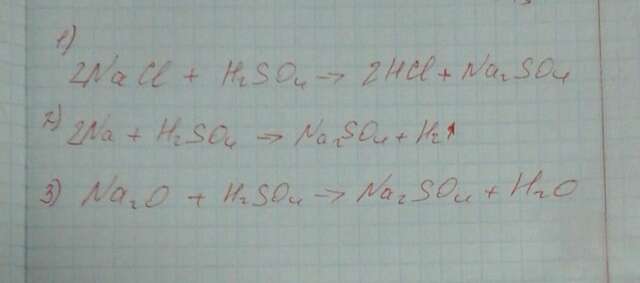 1)
2NaCl + H₂SO₄ → 2HCl + Na₂SO₄
2) 2Na + H₂SO₄ → Na₂SO₄ + H₂↑
3) Na₂O + H₂SO₄ → Na₂SO₄ + H₂O